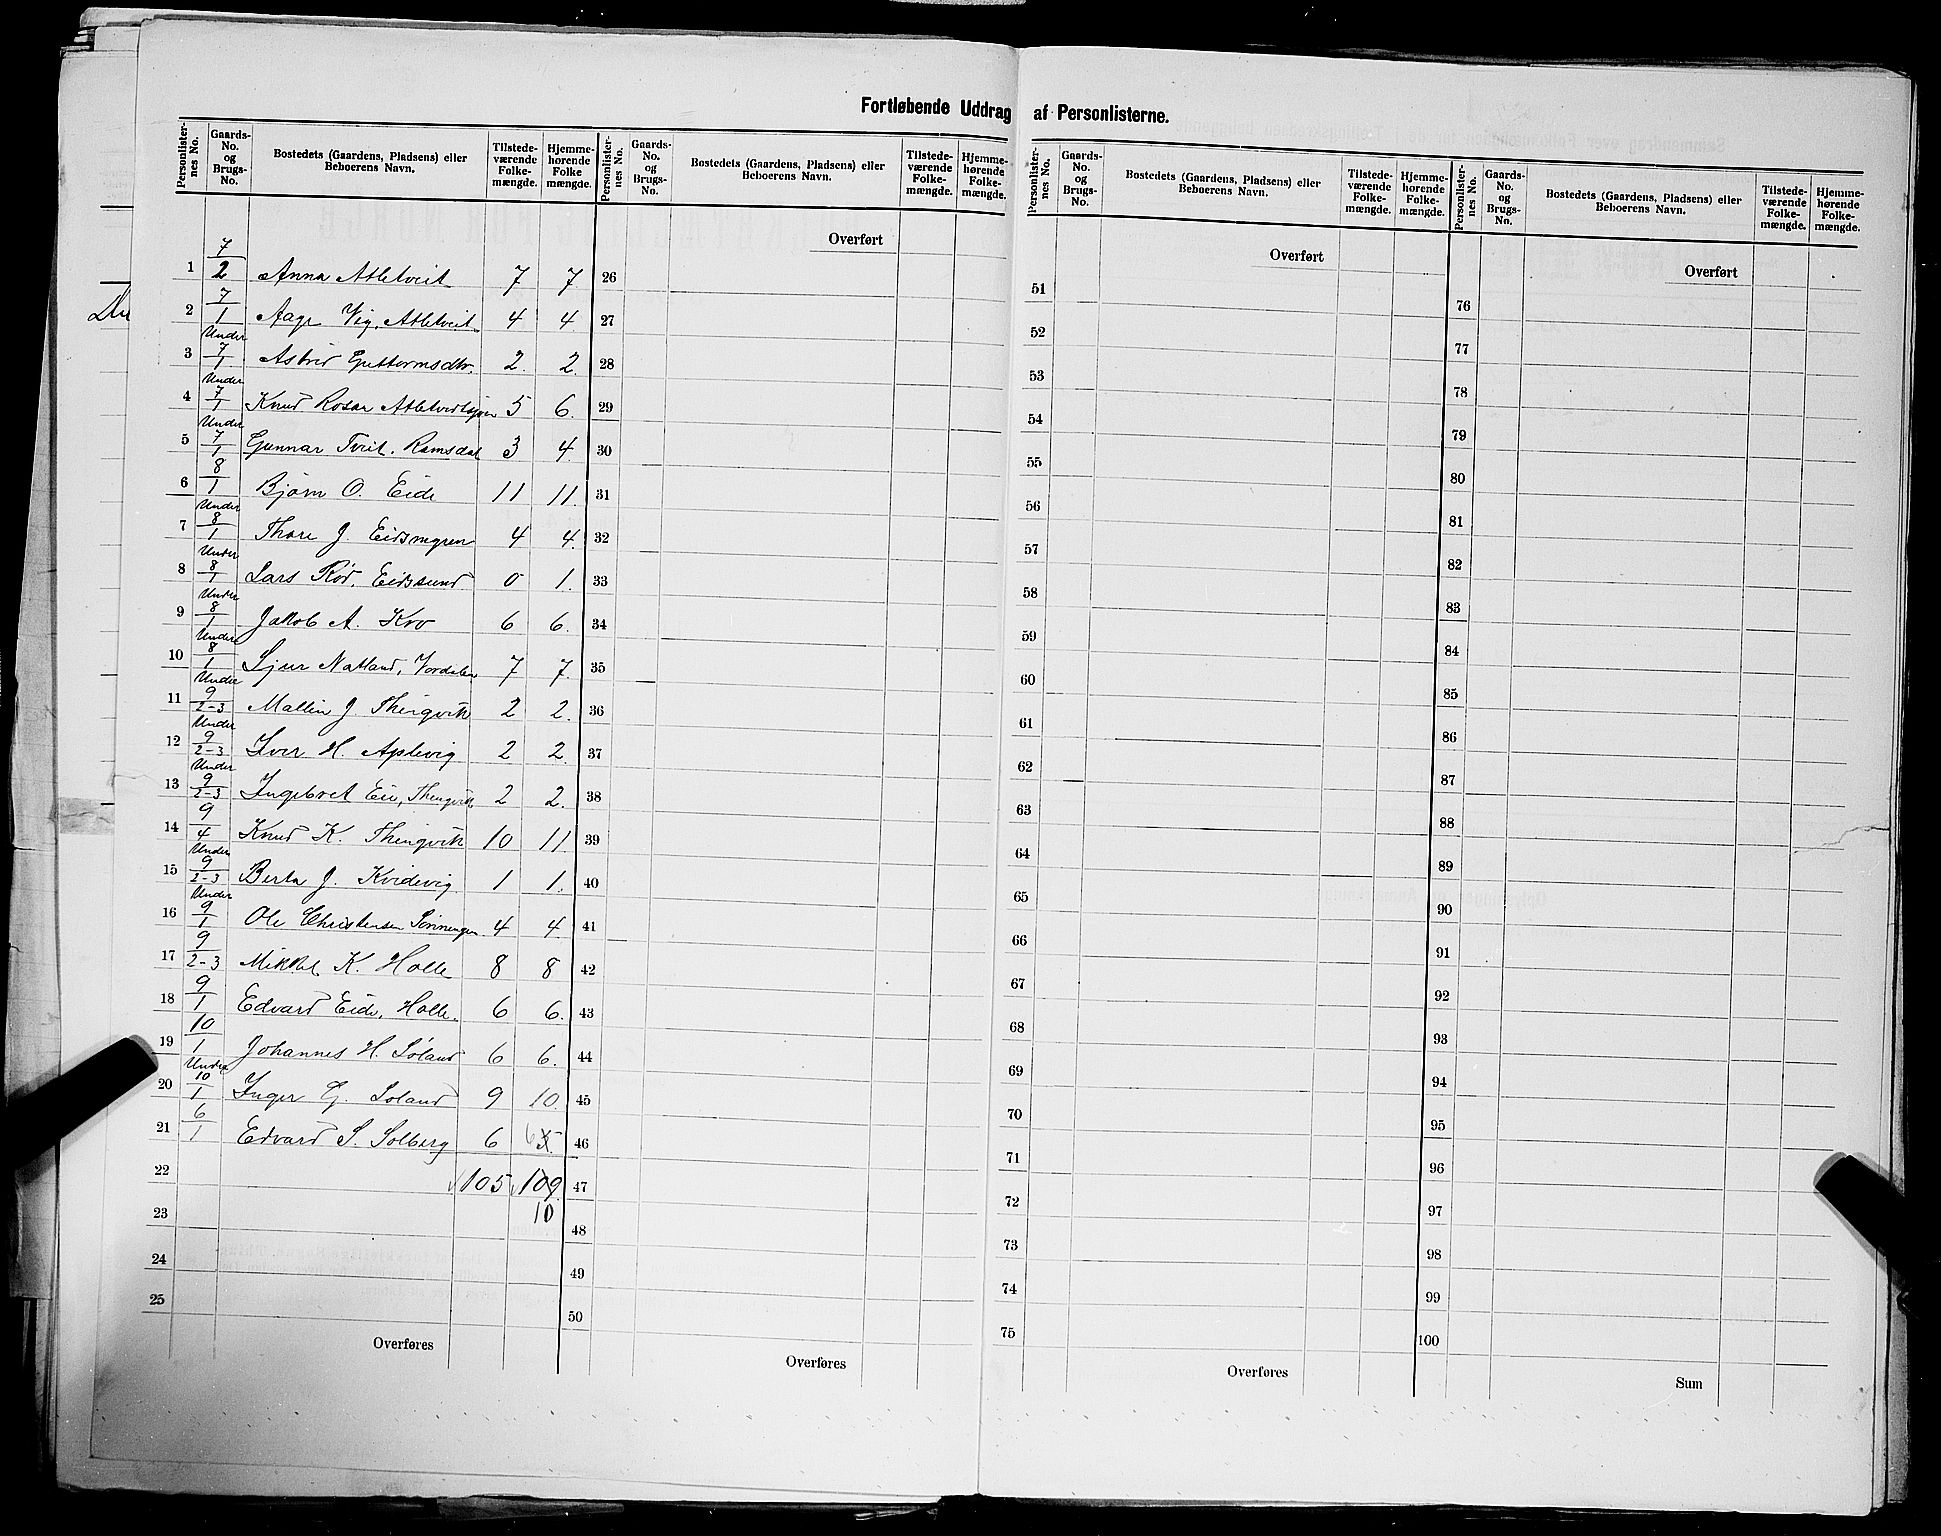 Fortløbende Uddrag af Personlisterne.
Personlisternes No. Gaards-No. og Brugs-No. Bostedets (Gaardens, Pladsens) eller Beboerens Navn. Tilstedeværende Folkemængde. Hjemmehørende Folke mængde.
Personlisternes No. Gaards-No. og Brugs-No. Bostedets (Gaardens, Pladsens) eller Beboerens Navn. Tilstedeværende Folkemængde. Hjemmehørende Folkemængde.
Personlisternes No. Gaards-No. og Brugs-No. Bostedets (Gaardens, Pladsens) eller Beboerens Navn. Tilstedeværende Folkemængde. Hjemmehørende Folkemængde.
Personlisternes No. Gaards-No. og Brugs-No. Bostedets (Gaardens, Pladsens) eller Beboerens Navn. Tilstedeværende Folkemængde. Hjemmehørende Folkemængde.
1 7/2 Anna Atletveit 7 7
2 7/1 Aage Vig, Atletveit 4 4
3 Under 7/1 Astrid Guttormsdtr. 2 2
4 Under 7/1 Knud Rosar 5 6
5 Under 7/1 Gunnar Tveit, Ramsdal 3 4
6 8/1 Bjørn O. Eide 11 11
7 Under 8/1 Thore J. Eidsmyren 4 4
8 Under 8/1 Lars Rød, Eidssund 0 1
9 Under 8/1 Jakob A. Kro 6 6
10 Under 8/1 Sjur Natland, Vordalen 7 7
11 Under 9/2-3 Mallin J. Thengvik 2 2
12 Under 9/2-3 Iver H. Aplevig 2 2
13 Under 9/2-3 Ingebret Eie, Thengvik 2 2
14 9/4 Knud K. Thengvik 10 11
15 Under 9/2-3 Berta J. Kvidevig 1 1
16 Under 9/1 Ole Christensen 4 4
17 9/2-3 Mikkel K. Holle 8 8
18 9/1 Edvard Eide, Holle. 6 6
19 10/1 Johannes H. Søland 6 6
20 Under 10/1 Inger G. Søland 9 10
21 6/1 Edvard S. Solberg 6 6 5
22 105 109
23 10
24
25
Overføres
Overført
26
27
28
29
30
31
32
33
34
35
36
37
38
39
40
41
42
43
44
45
46
47
48
49
50
Overføres
Overført
51
52
53
54
55
56
57
58
59
60
61
62
63
64
65
66
67
68
69
70
71
72
73
74
75
Overføres
Overført
76
77
78
79
80
81
82
83
84
85
86
87
88
89
90
91
92
93
94
95
96
97
98
99
100
Sum